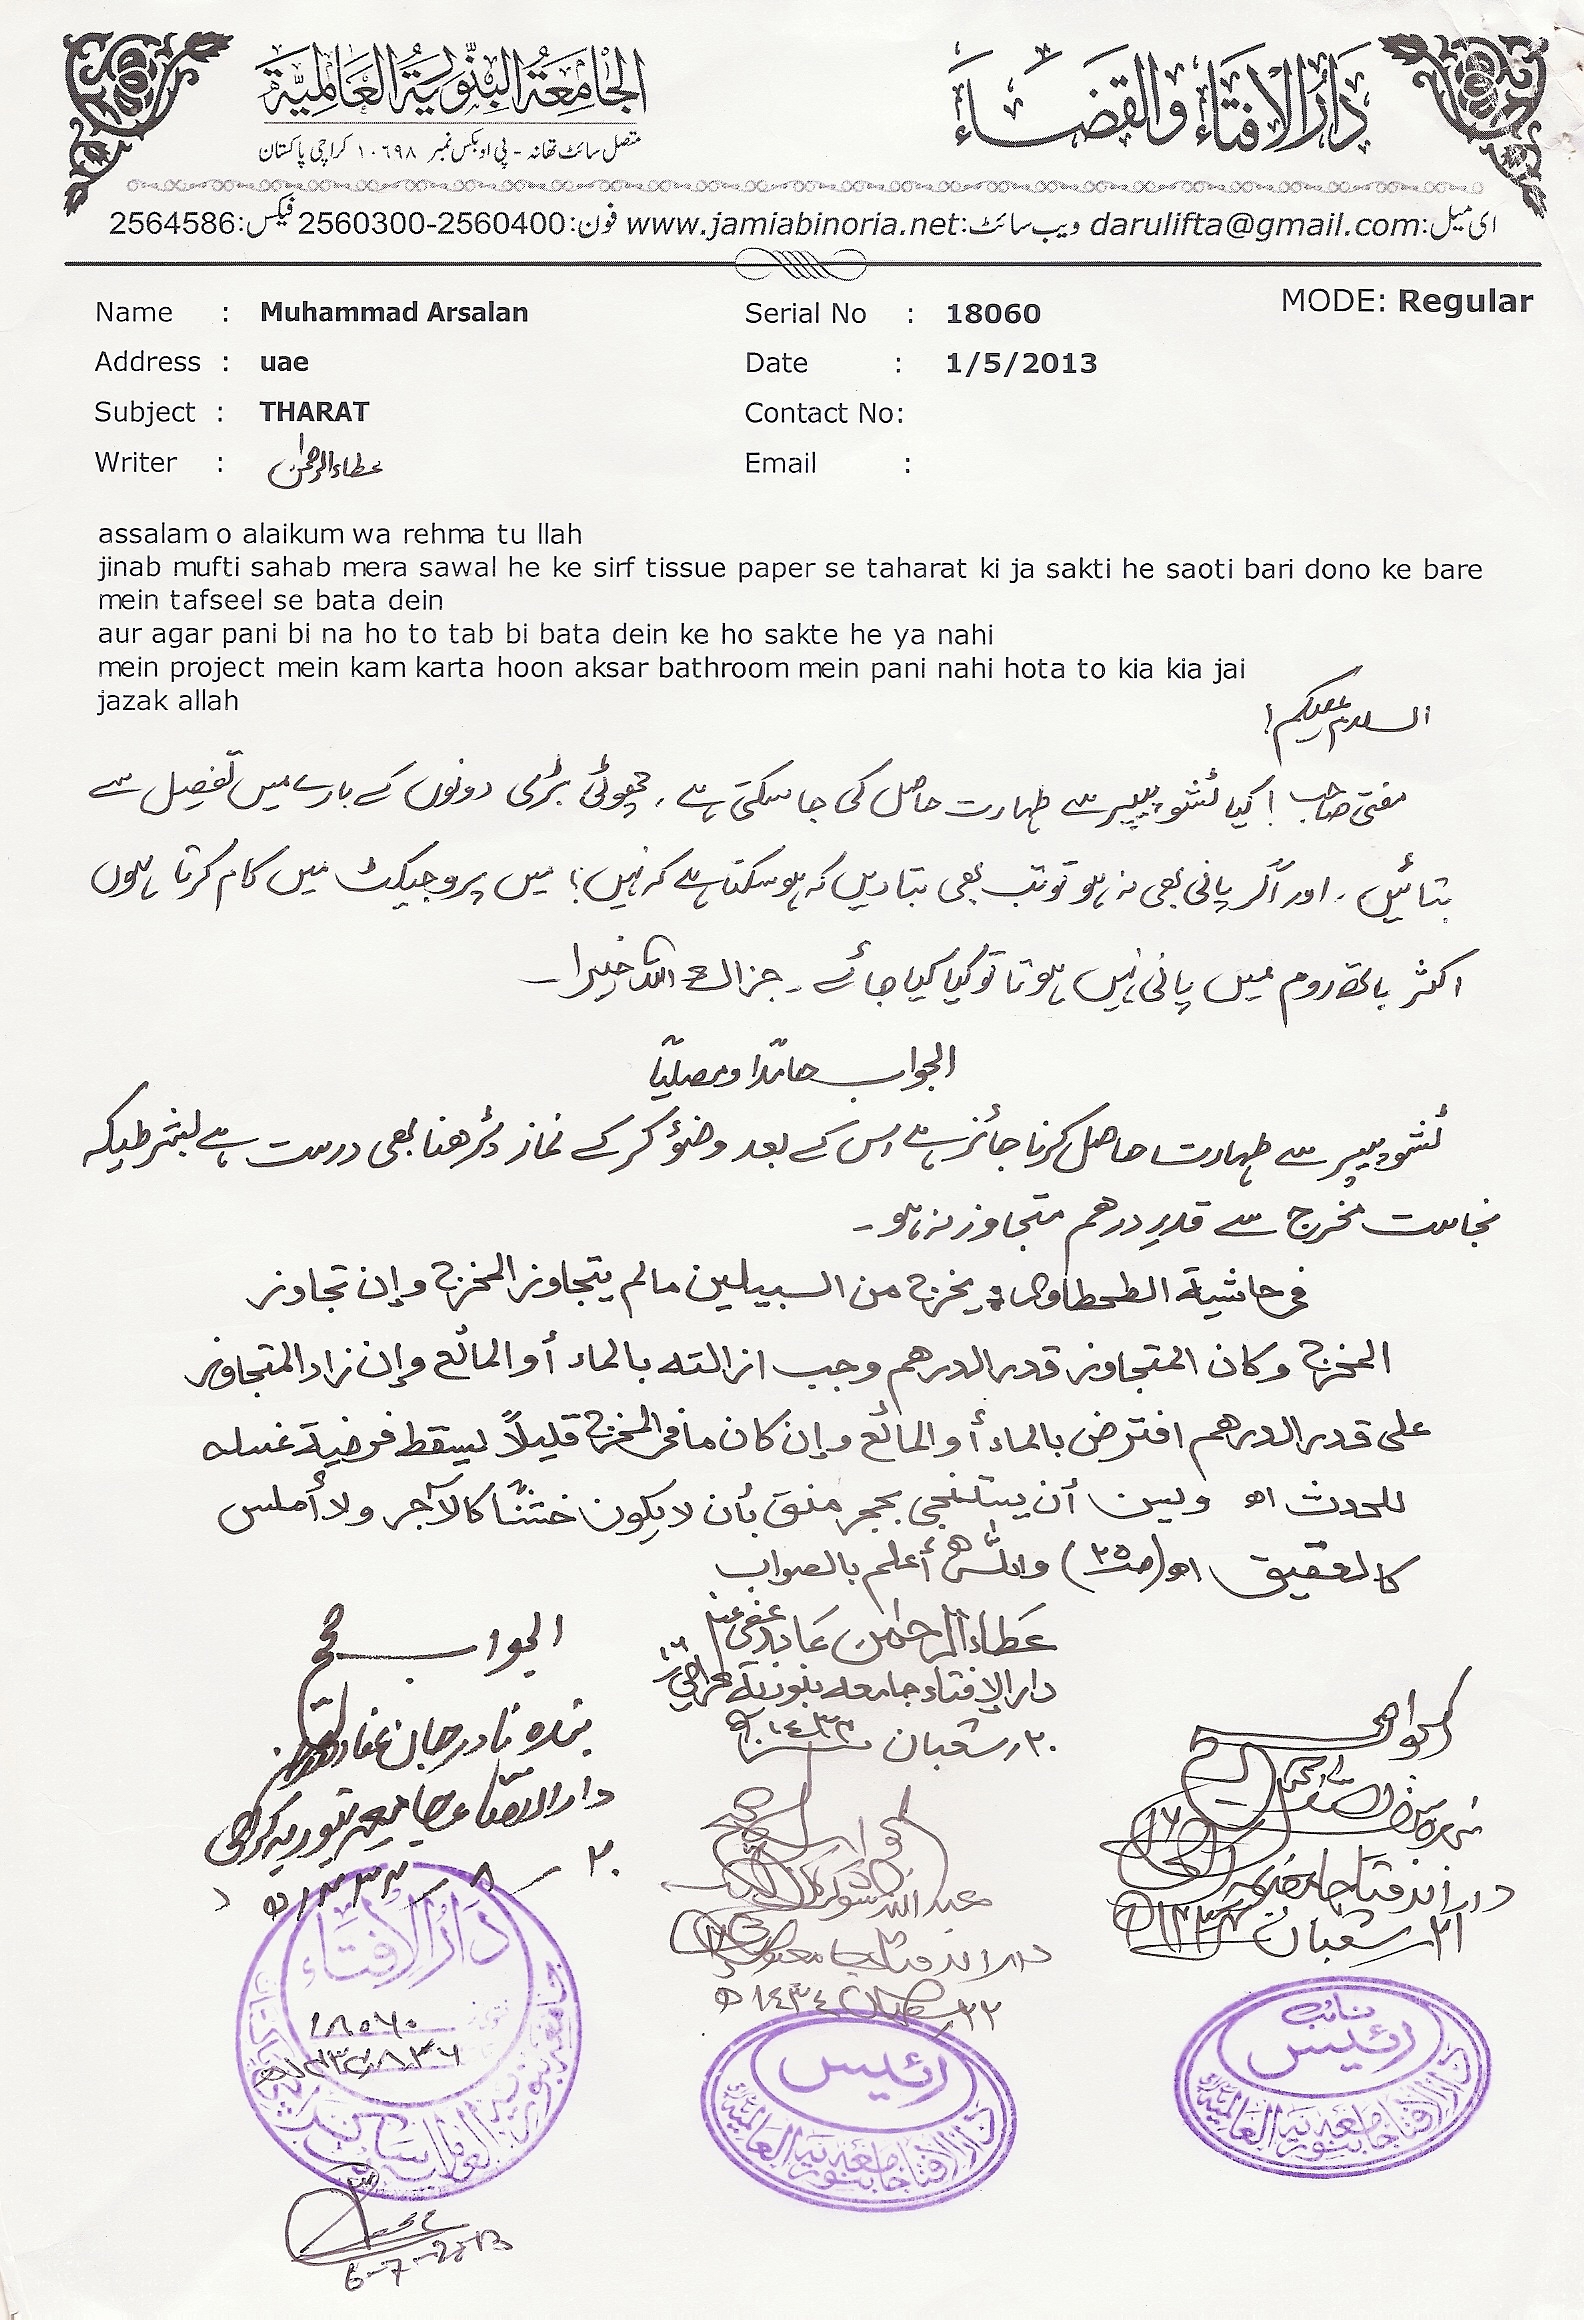 دَارُالاِفتَاء وَالقَضَاء
الجَامِعَةُ البِنّورِيَةُ العَالَمِيَّة
متصل سائٹ تھانہ - پی او بکس نمبر ۱۰۶۹۸ کراچی پاکستان
ای میل:darulifta@gmail.com ویب سائٹ:www.jamiabinoria.net فون:2560300-2560400 فیکس:2564586
MODE: Regular
Name : Muhammad Arsalan Serial No : 18060
Address : uae Date : 1/5/2013
Subject : THARAT Contact No:
Writer : عطاءالرحمٰن Email :
assalam o alaikum wa rehma tu llah
jinab mufti sahab mera sawal he ke sirf tissue paper se taharat ki ja sakti he saoti bari dono ke bare
mein tafseel se bata dein
aur agar pani bi na ho to tab bi bata dein ke ho sakte he ya nahi
mein project mein kam karta hoon aksar bathroom mein pani nahi hota to kia kia jai
jazak allah
السلام علیکم!
مفتی صاحب! کیا ٹشو پیپر سے طہارت حاصل کی جا سکتی ہے، چھوٹی بڑی دونوں کے بارے میں تفصیل سے
بتائیں، اور اگر پانی بھی نہ ہو تو تب بھی بتا دیں کہ ہو سکتا ہے کہ نہیں؟ میں پروجیکٹ میں کام کرتا ہوں
اکثر باتھ روم میں پانی نہیں ہوتا تو کیا کیا جائے۔ جزاک اللہ خیرا۔
الجواب حامدًا ومصلیًا
ٹشو پیپر سے طہارت حاصل کرنا جائز ہے اس کے بعد وضؤ کر کے نماز پڑھنا بھی درست ہے بشرطیکہ
نجاست مخرج سے قدرِ درھم متجاوز نہ ہو۔
فی حاشیة الطحطاوی: یخرج من السبیلین مالم یتجاوز المخرج وإن تجاوز
المخرج وکان المتجاوز قدر الدرھم وجب ازالته بالماء أو المائع وإن زاد المتجاوز
علی قدر الدرھم افترض بالماء أو المائع وإن کان ما فی المخرج قلیلاً لیسقط فرضیة غسله
للحدث اھ ویسن أن یستنجی بحجر منق بأن لا یکون خشنًا کالآجر ولا أملس
کالعقیق اھ (صـ۲۵) واللہ أعلم بالصواب
عطاء الرحمٰن عابد عفی عنہ
دار الإفتاء جامعه بنوریة کراچی ۱۶
۲۰ شعبان ۱٤۳٤ھ
الجواب صحیح
بندہ نادر جان
دار الافتاء جامعہ بنوریہ کراچی
۲۰ – ۸ – ۱۴۳۴ھ
الجواب صحیح
عبد اللہ شوکت
دار الافتاء جامعہ بنوریہ
۲۲ شعبان ۱٤۳٤ھ
الجواب صحیح
دار الافتاء جامعہ بنوریہ
۲۱ شعبان ۱۴۳۴ھ
دَارُالاِفتَاء
۱۸۰۶۰
رئیس
دارالافتا جامعہ بنوریہ العالمیة
نائب
رئیس
دارالافتا جامعہ بنوریہ العالمیة
6-7-2013